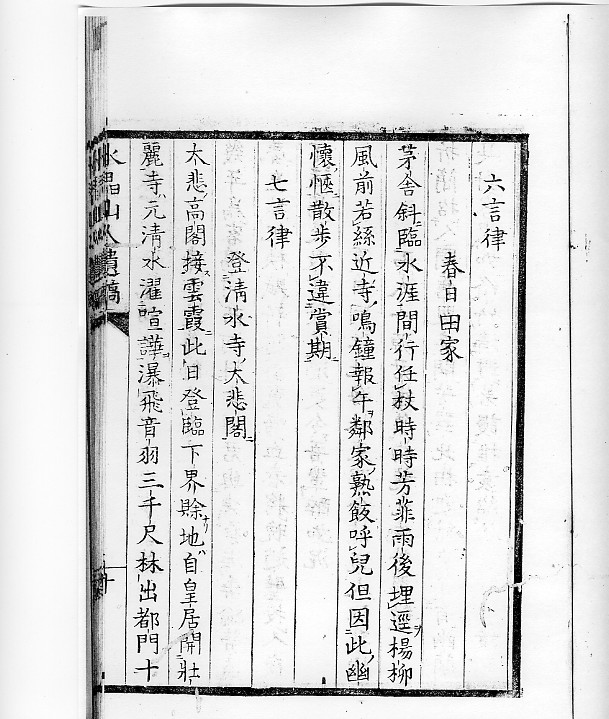 六言律
春日田家
茅舎斜臨水涯間行任杖時時芳菲雨後埋逕楊柳
風前若絲近寺鳴鐘報午鄰家熟飯呼兒但因此幽
懷愜散歩不違賞期
七言律
登清水寺大悲閣
大悲高閣接雲霞此日登臨下界賖地自皇居開壯
麗寺元清水濯喧譁瀑飛音羽三千尺林出都門十
水晶山人遺稿